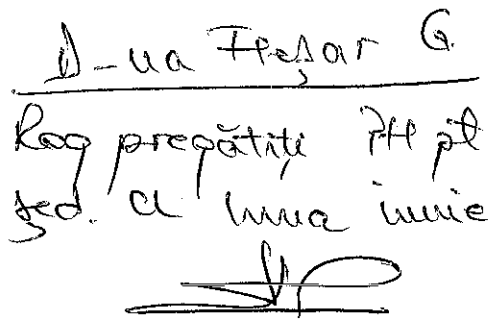 D-na Fleșar G.
Rog pregătiți PH pt
șed. d luna iunie